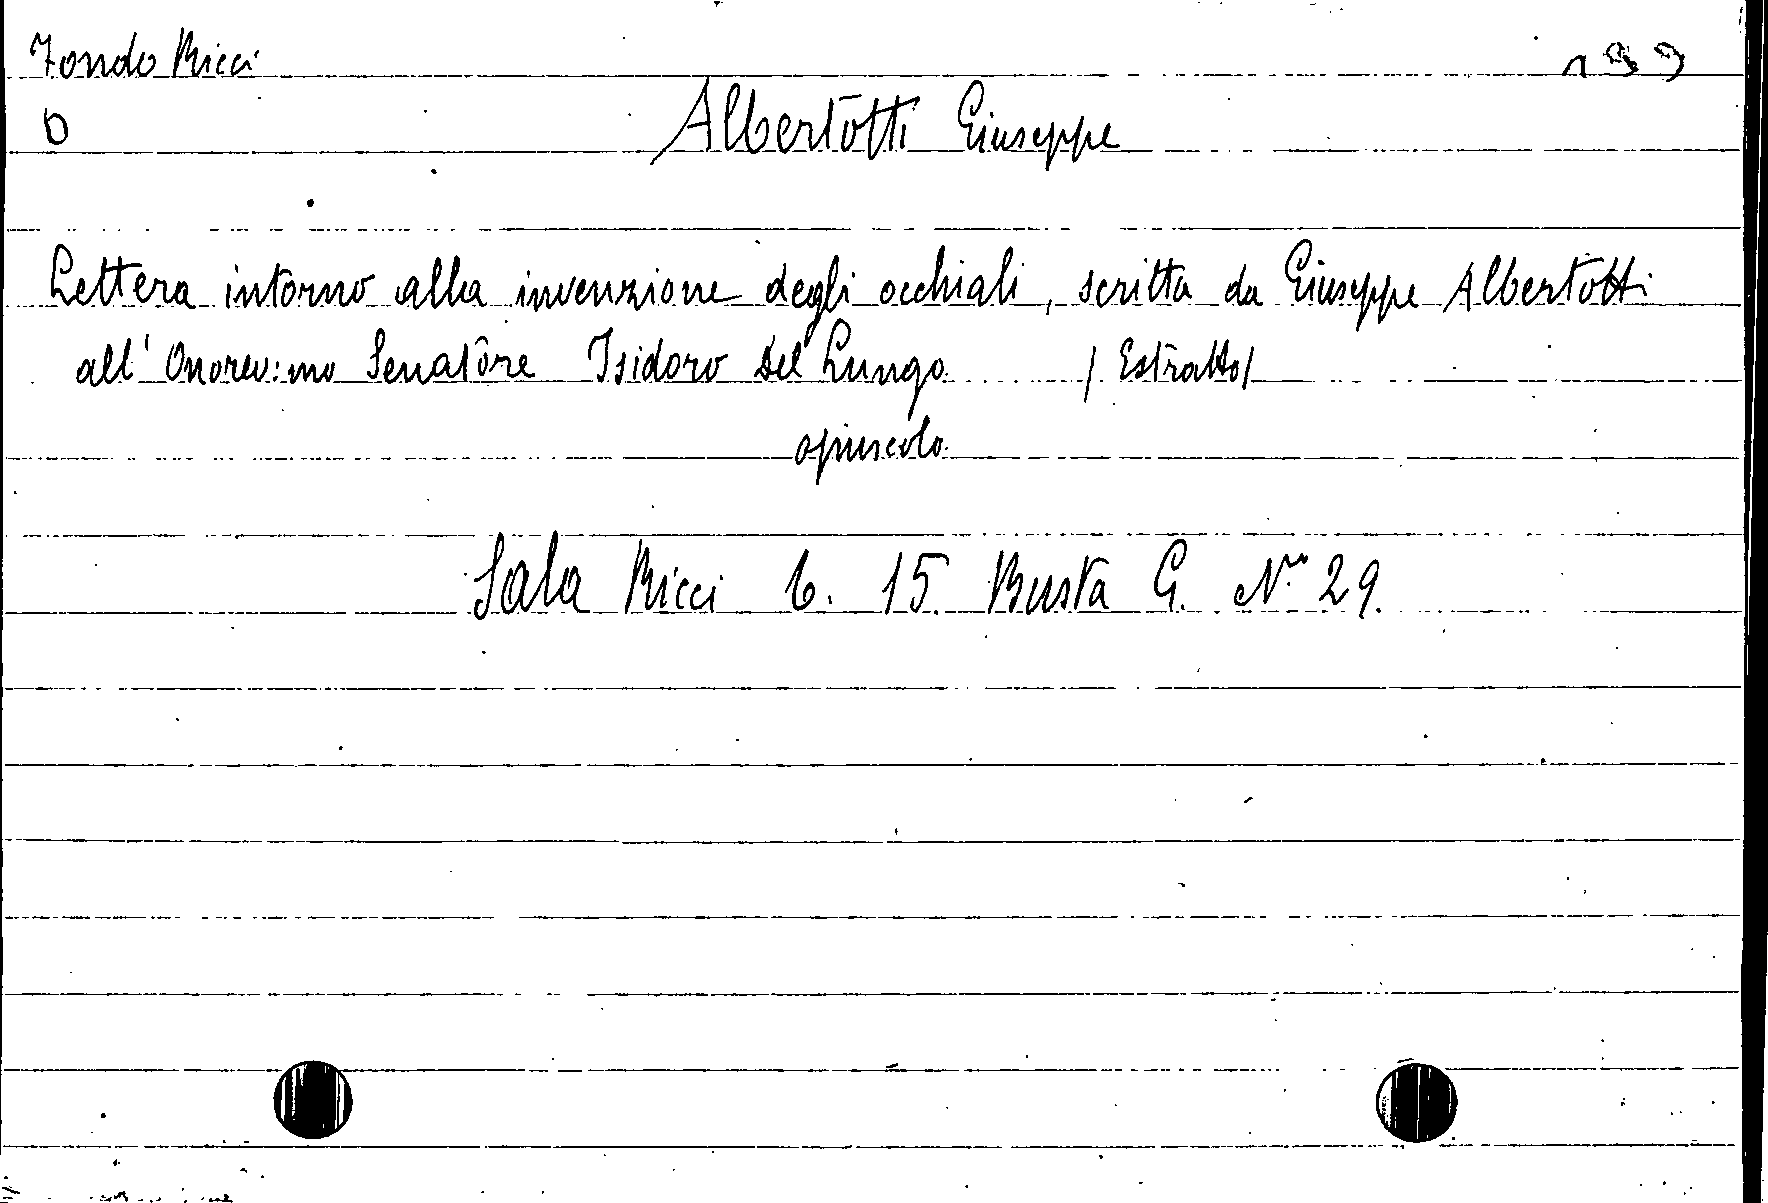 Fondo Ricci 199
b
Albertotti Giuseppe
Lettera intorno alla invenzione degli occhiali, scritta da Giuseppe Albertotti
all' Onorev:mo Senatore Isidoro Del Lungo / Estratto/
opuscolo
Sala Ricci 6. 15. Busta G. N.º 29.